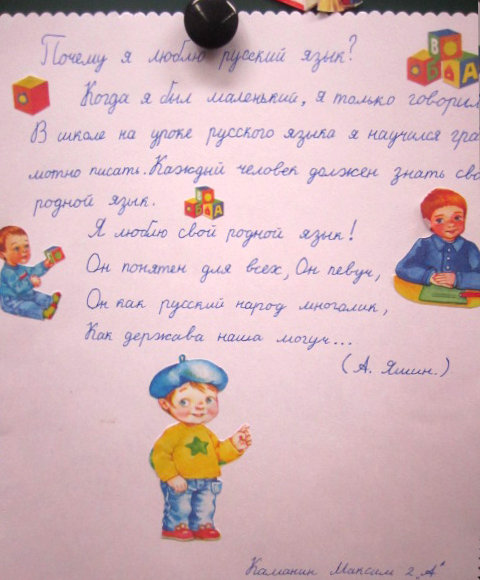 Почему я люблю русский язык?
Когда я был маленький, я только говорил
В школе на уроке русского языка я научился гра
мотно писать. Каждый человек должен знать сво
родной язык.
Я люблю свой родной язык!
Он понятен для всех, Он певуч,
Он как русский народ многолик,
Как держава наша могуч...
(А. Яшин.)
Каманин Максим 2 „А"